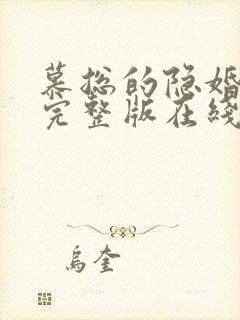 慕总的隐婚
完整版在线
乌奎